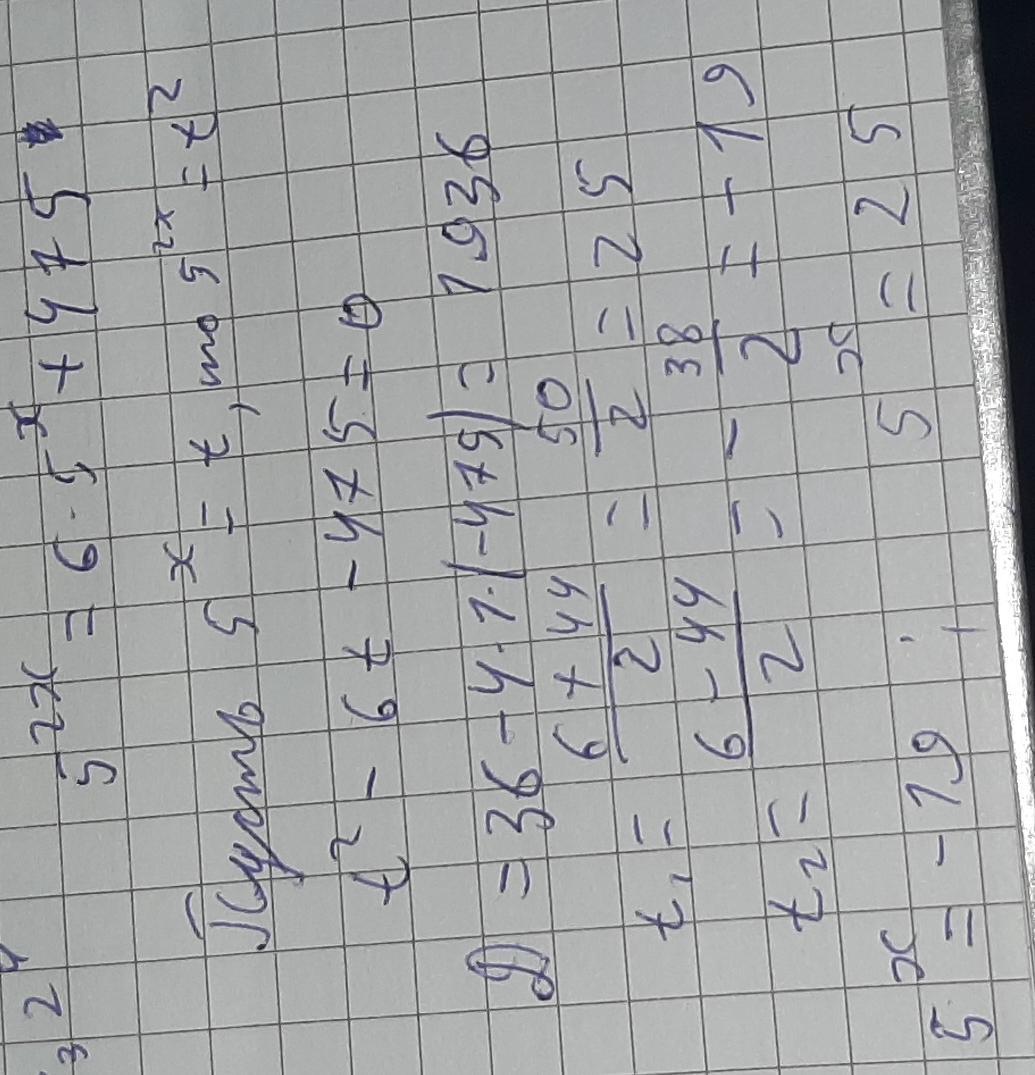 3 2 4
5^{2x} = 6 · 5^x + 475
Пусть 5^x = t, то 5^{2x} = t^2
t^2 - 6t - 475 = 0
D = 36 - 4 · 1 · (-475) = 1936
t_1 = \frac{6 + 44}{2} = \frac{50}{2} = 25
t_2 = \frac{6 - 44}{2} = -\frac{38}{2} = -19
5^x = -19 ; 5^x = 25